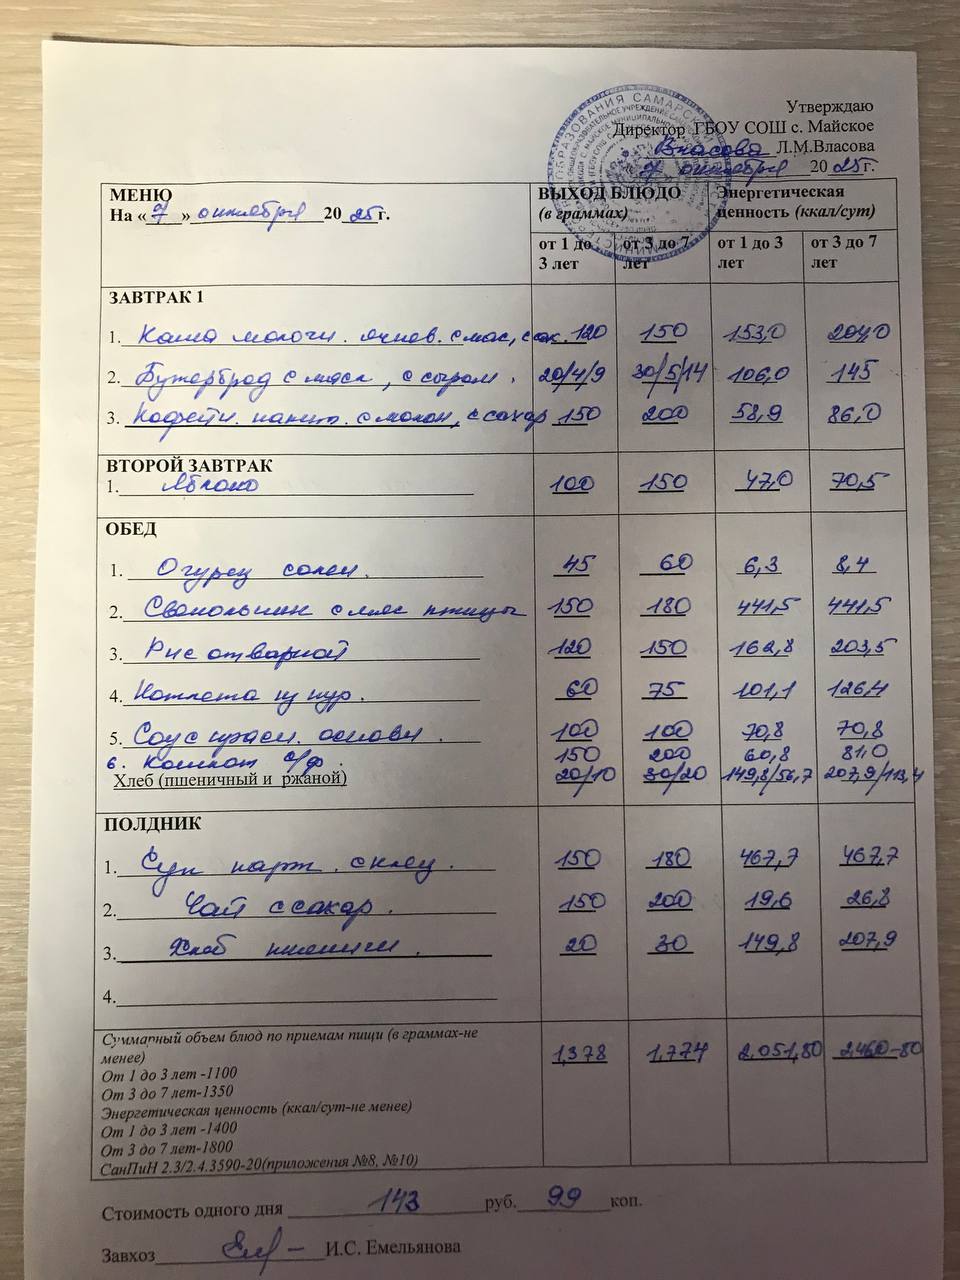 Утверждаю
Директор ГБОУ СОШ с. Майское
Власова Л.М.Власова
7 октября 20 25 г.
МЕНЮ
На « 7 » октября 20 25 г.
ВЫХОД БЛЮДО
(в граммах)
Энергетическая
ценность (ккал/сут)
от 1 до 3 лет от 3 до 7 лет от 1 до 3 лет от 3 до 7 лет
ЗАВТРАК 1
1. Каша молочн. ячнев. с мас, с сах. 120 150 153,0 204,0
2. Бутерброд с масл, с сыром. 20/4/9 30/5/14 106,0 145
3. Кофейн. напит. с молок, с сахар 150 200 58,9 86,0
ВТОРОЙ ЗАВТРАК
1. Яблоко 100 150 47,0 70,5
ОБЕД
1. Огурец солен. 45 60 6,3 8,4
2. Свекольник с мяс птицы 150 180 441,5 441,5
3. Рис отварной 120 150 162,8 203,5
4. Котлета из кур. 60 75 101,1 126,4
5. Соус красн. основн. 100 100 70,8 70,8
6. Компот с/ф. 150 200 60,8 81,0
Хлеб (пшеничный и ржаной) 20/10 30/20 149,8/56,7 207,9/113,4
ПОЛДНИК
1. Суп карт. с клец. 150 180 467,7 467,7
2. Чай с сахар. 150 200 19,6 26,8
3. Хлеб пшеничн. 20 30 149,8 207,9
4.
Суммарный объем блюд по приемам пищи (в граммах-не
менее) 1,378 1,774 2,051,80 2,460-80
От 1 до 3 лет -1100
От 3 до 7 лет-1350
Энергетическая ценность (ккал/сут-не менее)
От 1 до 3 лет -1400
От 3 до 7 лет-1800
СанПиН 2.3/2.4.3590-20(приложения №8, №10)
Стоимость одного дня 143 руб. 99 коп.
Завхоз И.С. Емельянова